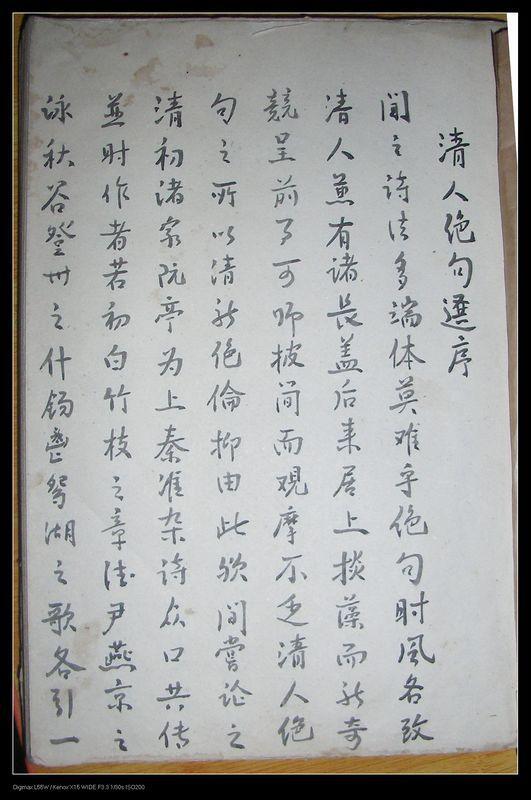 清人绝句選序
闻之诗法多端体莫难乎绝句时风各致
清人兼有诸长盖后来居上掞藻而新奇
競呈前马可师披简而观摩不乏清人绝
句之所以清新绝倫抑由此欤间嘗论之
清初诸家阮亭为上秦淮杂诗众口共传
並时作者若初白竹枝之章德尹燕京之
咏秋谷登州之什锡鬯鸳湖之歌各引一
Digimax L55W / Kenox X15 WIDE F3.3 1/30s ISO200